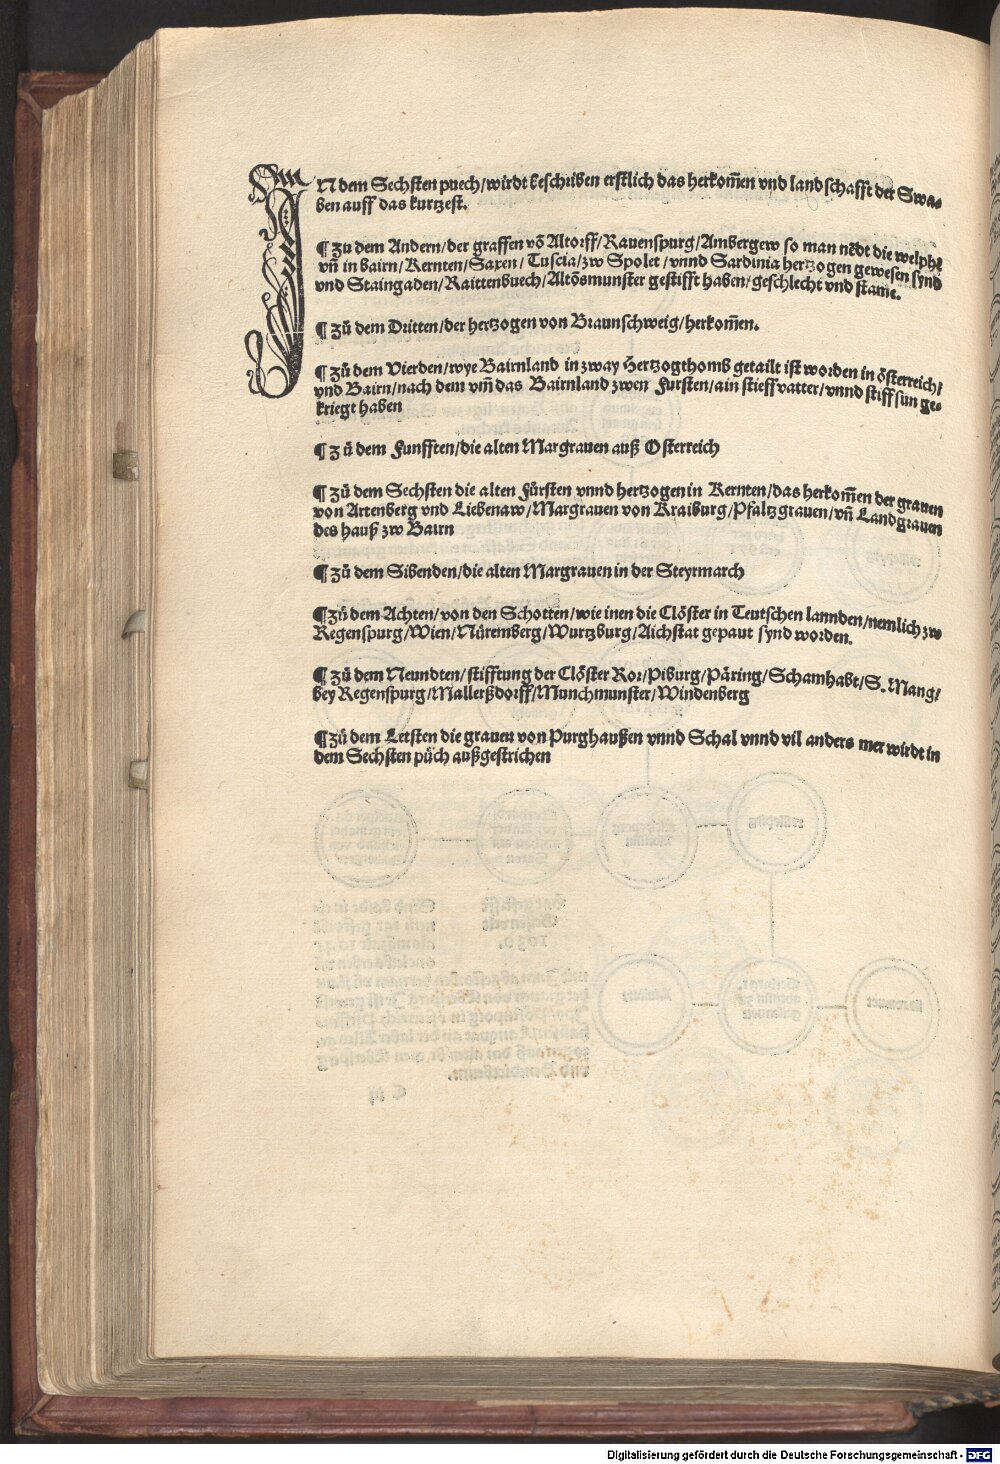 IN dem Sechsten puech/wirdt beschriben erstlich das herkom̄en vnd landschafft der Swa⸗
ben auff das kurtzest.
¶ Zu dem Andern/der graffen vō Altorff/Rauenspurg/Ambergew so man nēdt die welphē
vn̄ in bairn/Kernten/Saxen/Tuscia/zw Spolet/vnnd Sardinia hertzogen gewesen synd
vnd Staingaden/Raittenbuech/Altōsmunster gestifft haben/geschlecht vnd stam̄e.
¶ Zů dem Dritten/der hertzogen von Braunschweig/herkom̄en.
¶ Zů dem Vierden/wye Bairnland in zway Hertzogthomb getailt ist worden in österreich/
vnd Bairn/nach dem vm̄ das Bairnland zwen Fursten/ain stieffvatter/vnnd stiffsun ge⸗
kriegt haben
¶ Zů dem Funfften/die alten Margrauen auß Osterreich
¶ Zů dem Sechsten die alten Fürsten vnnd hertzogen in Kernten/das herkom̄en der grauen
von Artenberg vnd Liebenaw/Margrauen von Kraiburg/Pfaltzgrauen/vn̄ Landgrauen
des hauß zw Bairn
¶ Zů dem Sibenden/die alten Margrauen in der Steyrmarch
¶ Zů dem Achten/von den Schotten/wie inen die Clöster in Teutschen lannden/nemlich zw
Regenspurg/Wien/Nüremberg/Wurtzburg/Aichstat gepaut synd worden.
¶ Zů dem Neundten/stifftung der Clöster Ror/Piburg/Päring/Schamhabt/S. Mang/
bey Regenspurg/Mallerßdorff/Munchmunster/Windenberg
¶ Zů dem Letsten die grauen von Purghaußen vnnd Schal vnnd vil anders mer wirdt in
dem Sechsten půch außgestrichen
Digitalisierung gefördert durch die Deutsche Forschungsgemeinschaft - DFG